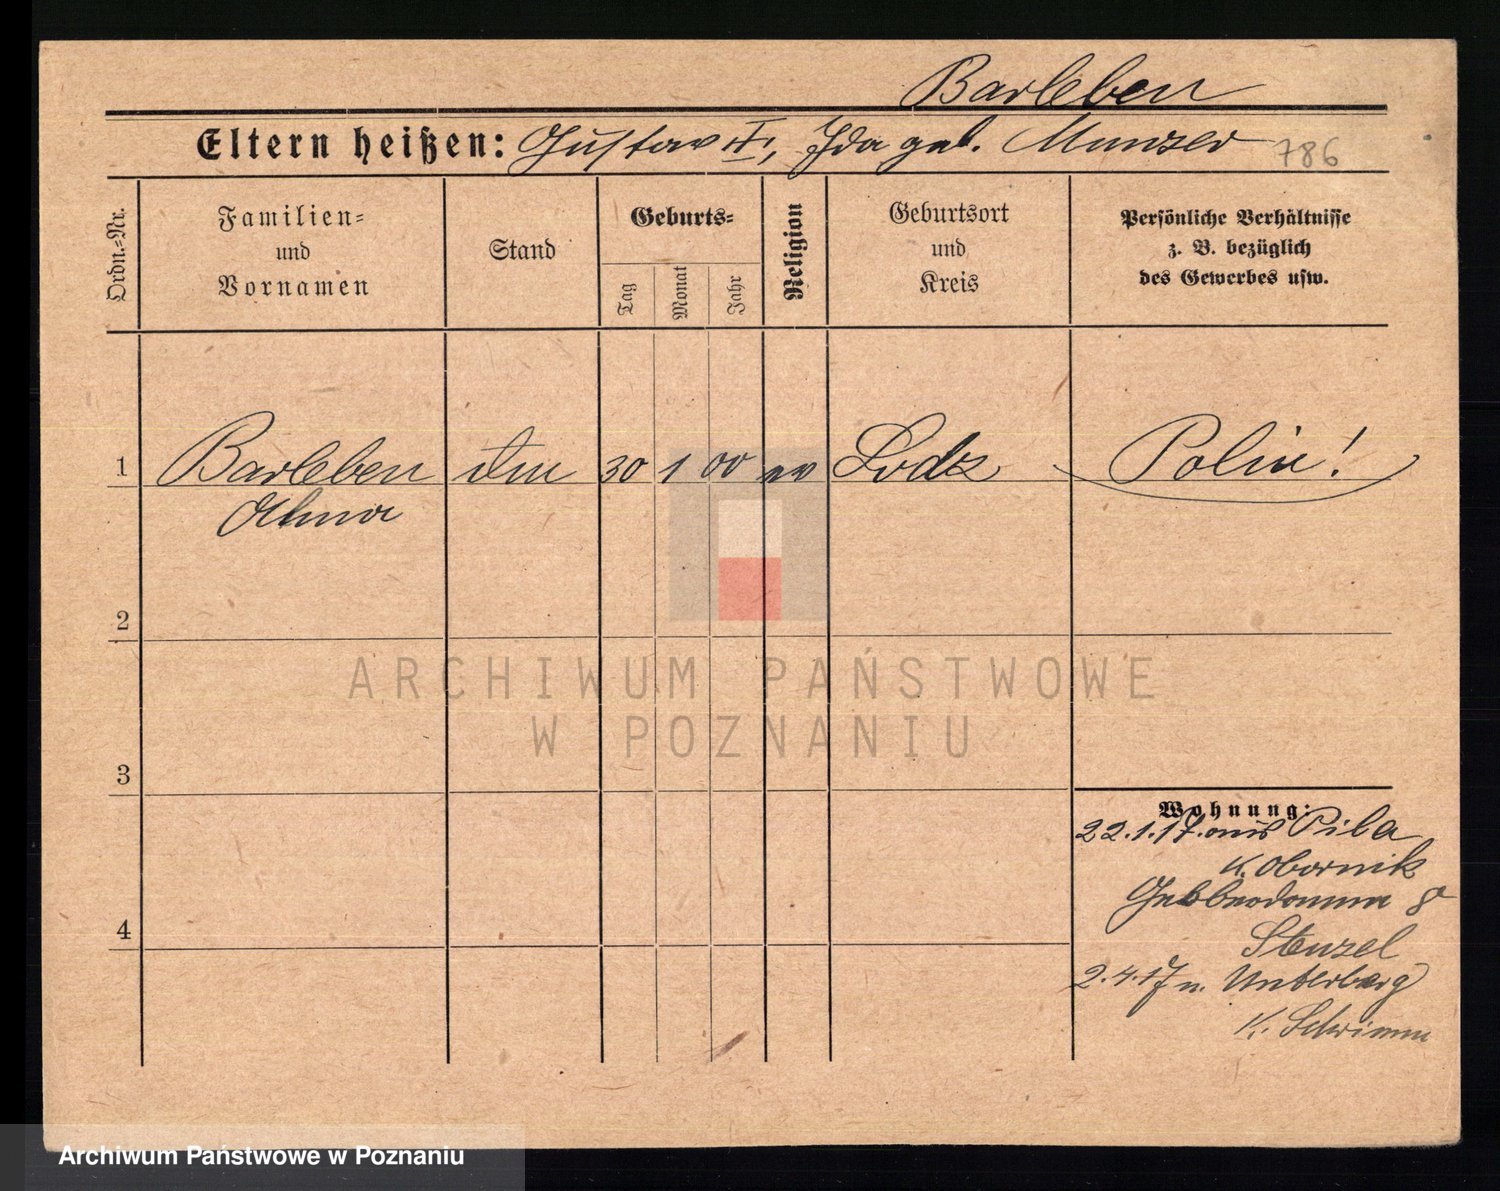 Barleben
Eltern heißen: Gustav †, Ida geb. Munzer 786
Ordn.-Nr.
Familien- und Vornamen
Stand
Geburts-
Tag
Monat
Jahr
Religion
Geburtsort und Kreis
Persönliche Verhältnisse
z. B. bezüglich
des Gewerbes usw.
1 Barleben 30 1 00 ev Lodz Polin!
Alma
2
3
4
Wohnung:
22.1.17. aus Pila
K. Obornik
8
Stenzel
2.4.17 n. Unterberg
K. Schrimm
ARCHIWUM PAŃSTWOWE
W POZNANIU
Archiwum Państwowe w Poznaniu